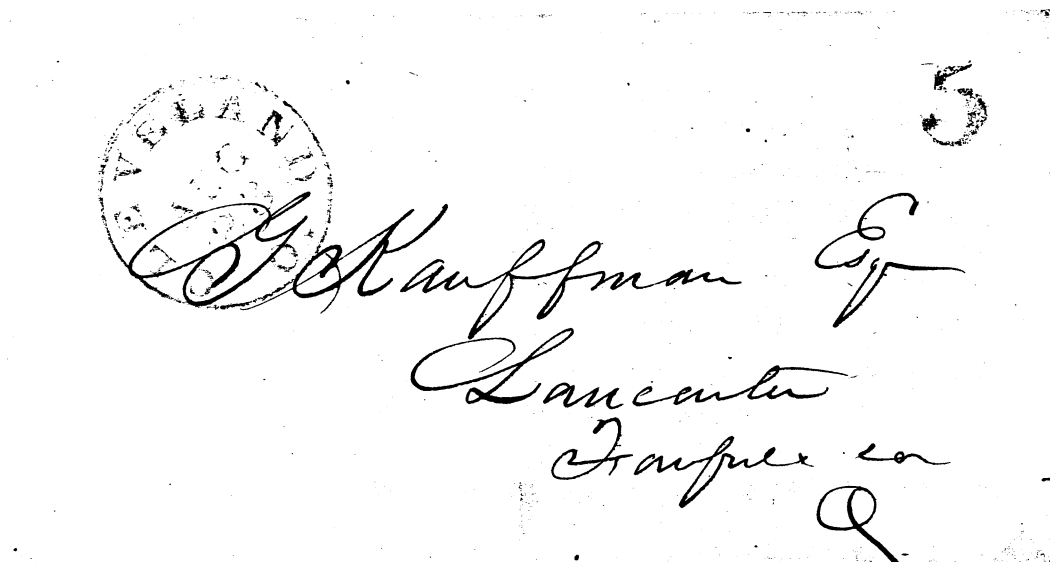 5
CLEVELAND O.
G Kauffman Esqr
Lancaster
Fairfield co
O